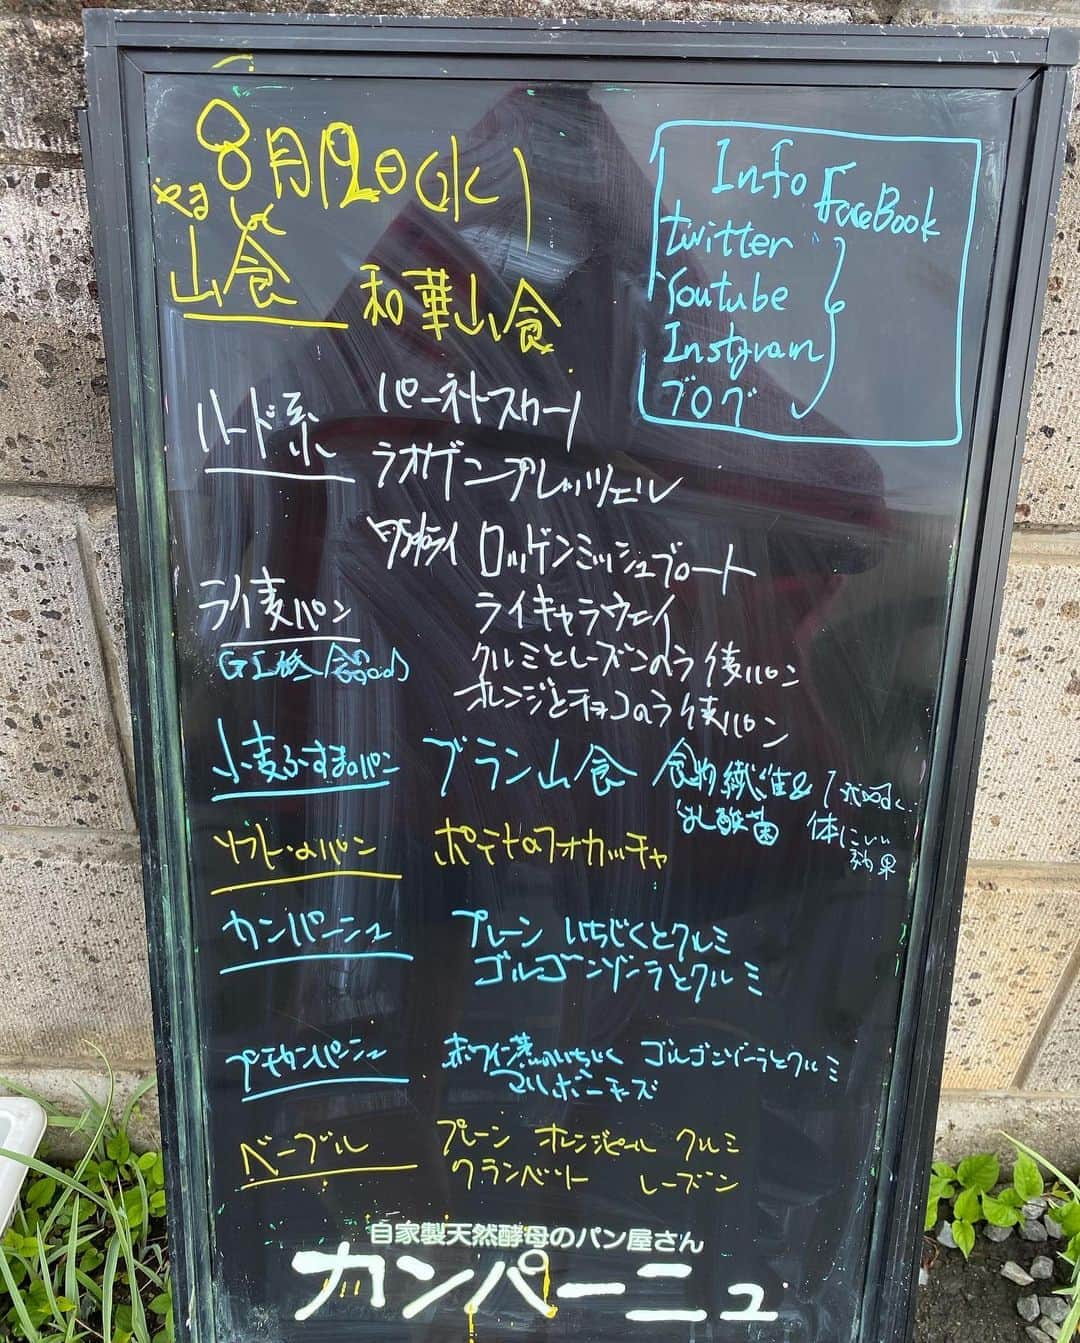 8月12日(水)
やま しょく
山食 和華山食
Info FaceBook
twitter
Youtube
Instgram
ブログ
ハード系 パーネトスクーノ
ラオゲンプレッツェル
ロッゲンミッシュブロート
ライ麦パン ライキャラウェイ
GI値 食品 クルミとレーズンのライ麦パン
オレンジとチョコのライ麦パン
小麦ふすまのパン ブラン山食 食物繊維&
乳酸菌 体にいい
効果
ソフトのパン ポテトのフォカッチャ
カンパーニュ プレーン いちじくとクルミ
ゴルゴンゾーラとクルミ
プチカンパーニュ 赤ワイン煮のいちじく ゴルゴンゾーラとクルミ
マルボーチーズ
ベーグル プレーン オレンジピール クルミ
クランベリー レーズン
自家製天然酵母のパン屋さん
カンパーニュ